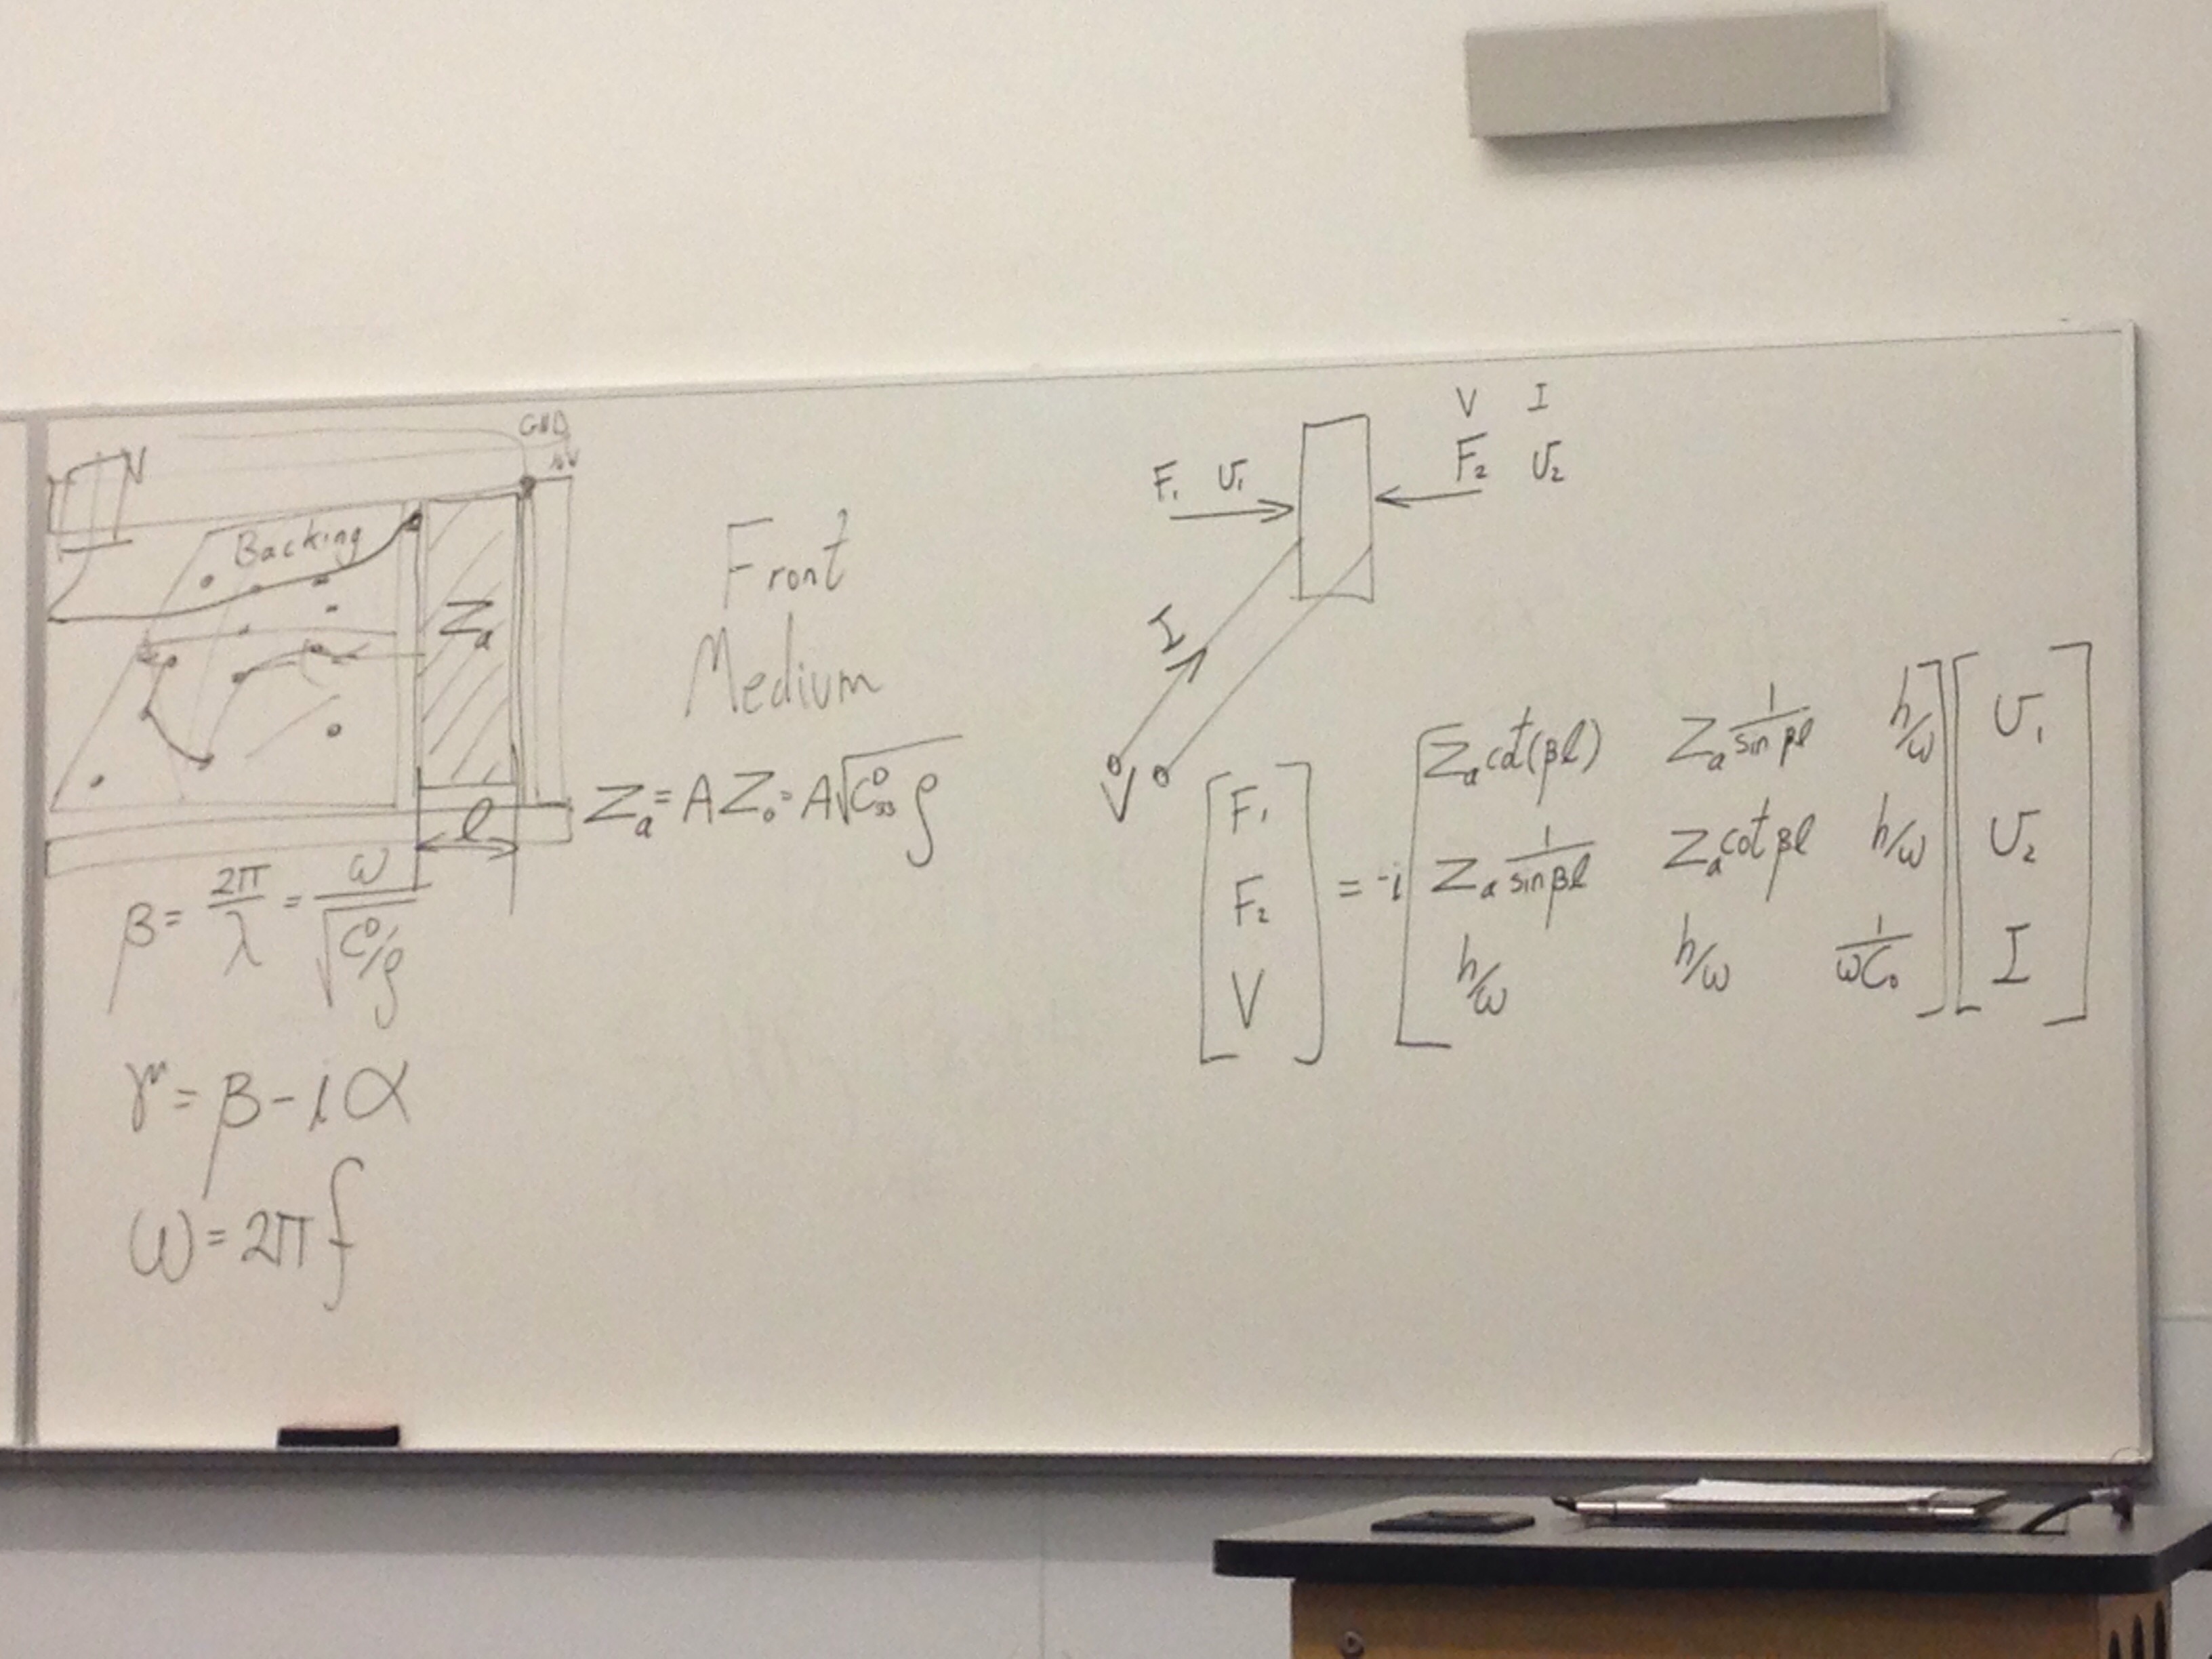 GND
V
Backing
Zₐ
l
Front
Medium
Zₐ = A Z₀ = A√C₃₃ᴰ ρ
β = 2π/λ = ω/√(Cᴰ/ρ)
γ = β - iα
ω = 2πf
V I
F₁ U₁ F₂ U₂
I
V
[F₁ F₂ V] = -i [Zₐ cot(βl) Zₐ 1/sin βl h/ω
Zₐ 1/sin βl Zₐ cot βl h/ω
h/ω h/ω 1/ωC₀] [U₁ U₂ I]